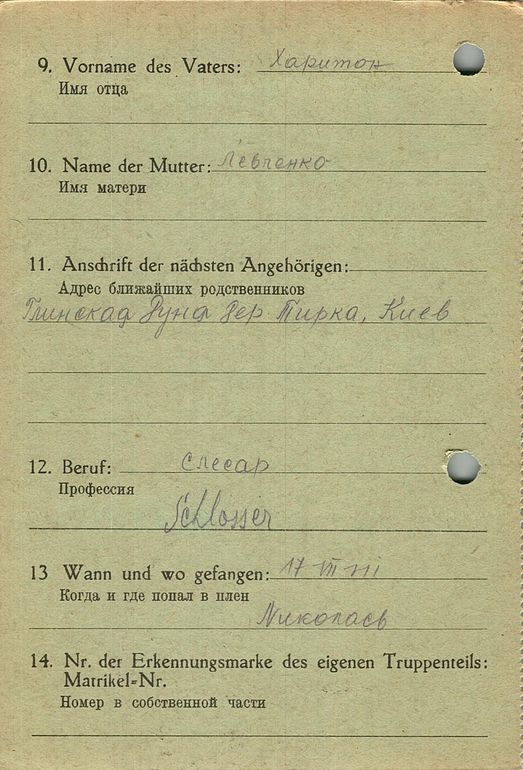 9. Vorname des Vaters: Харитон
Имя отца
10. Name der Mutter: Левченко
Имя матери
11. Anschrift der nächsten Angehörigen:
Адрес ближайших родственников
Глинская Дер Пирка, Киев
12. Beruf: слесар
Профессия
Schlosser
13 Wann und wo gefangen: 17 VIII
Когда и где попал в плен
Николаев
14. Nr. der Erkennungsmarke des eigenen Truppenteils:
Matrikel=Nr.
Номер в собственной части